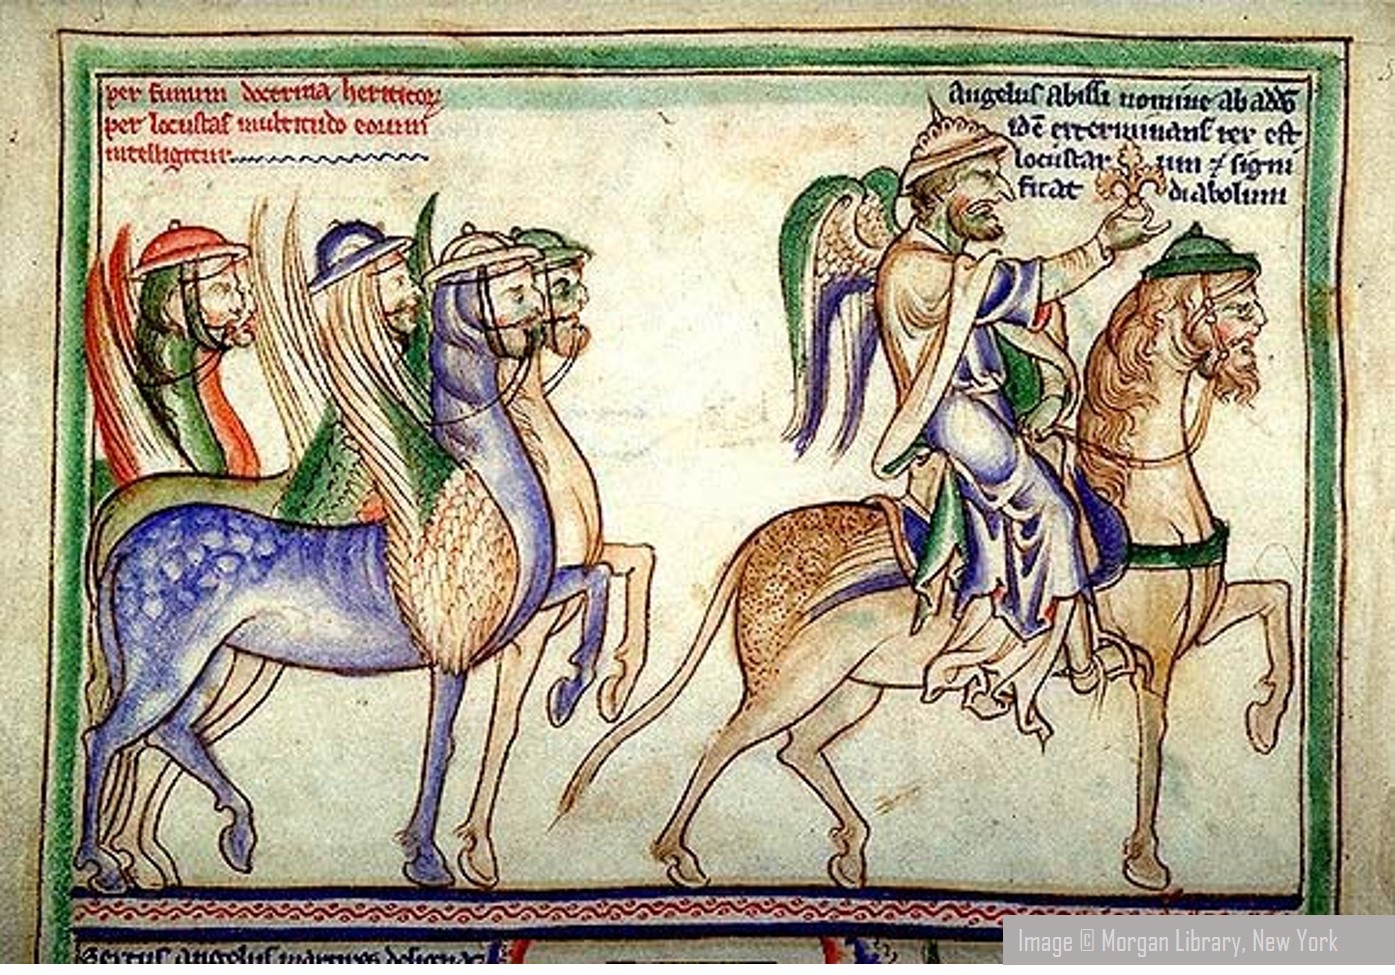 per fumum doctrina hereticor
per locustas multitudo eorum
intelligitur
Angelus abissi nomine abaddō
id ē exterminans rex est
locustar um ⁊ signi
ficat diabolum
angelus
Image © Morgan Library, New York